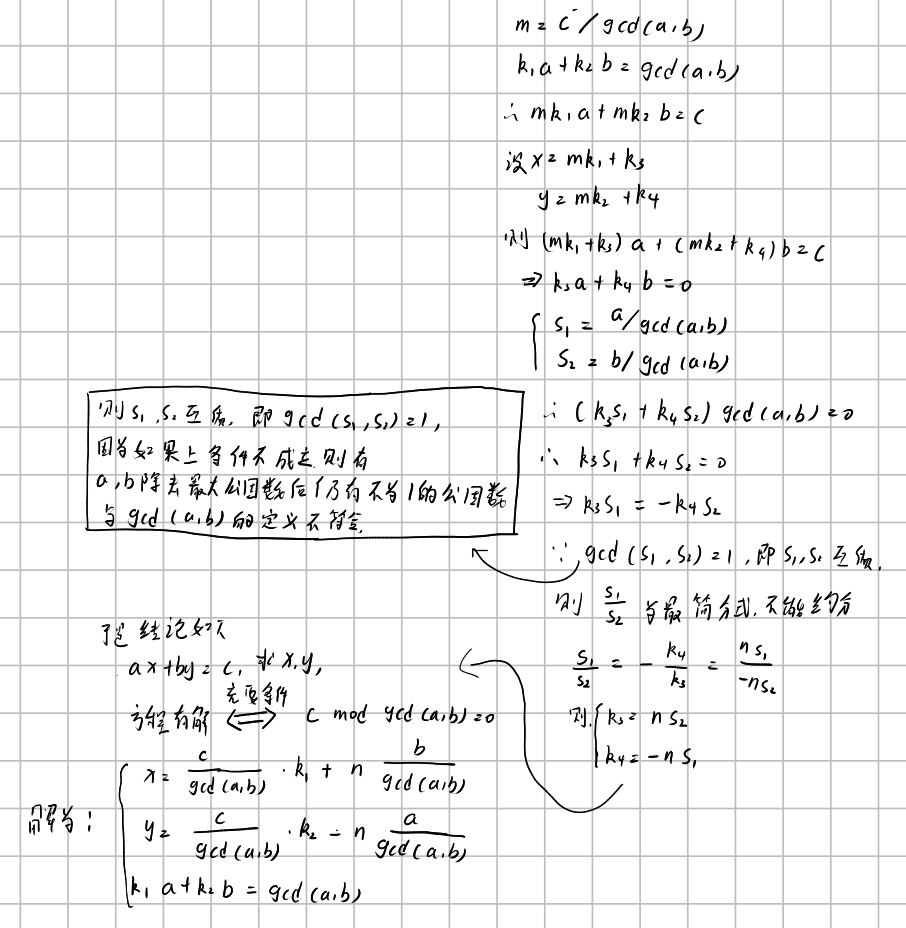 m = c / gcd(a,b)
k₁a + k₂b = gcd(a,b)
∴ mk₁a + mk₂b = c
设 x = mk₁ + k₃
y = mk₂ + k₄
则 (mk₁+k₃)a + (mk₂+k₄)b = c
⇒ k₃a + k₄b = 0
{ s₁ = a/gcd(a,b)
s₂ = b/gcd(a,b)
∴ (k₃s₁ + k₄s₂) gcd(a,b) = 0
∴ k₃s₁ + k₄s₂ = 0
⇒ k₃s₁ = -k₄s₂
∵ gcd(s₁,s₂) = 1, 即 s₁,s₂ 互质.
则 s₁/s₂ 为最简分式, 不能约分
s₁/s₂ = - k₄/k₃ = ns₁/-ns₂
则 { k₃ = ns₂
k₄ = -ns₁
则 s₁,s₂ 互质, 即 gcd(s₁,s₂) = 1,
因为如果上条件不成立则有
a,b除去最大公因数后仍有不为1的公因数
与 gcd(a,b) 的定义不符合.
结论如下
ax+by = c, 求 x,y,
充要条件
方程有解 ⟺ c mod gcd(a,b) = 0
解为: { x = c/gcd(a,b) · k₁ + n b/gcd(a,b)
y = c/gcd(a,b) · k₂ - n a/gcd(a,b)
k₁a + k₂b = gcd(a,b)